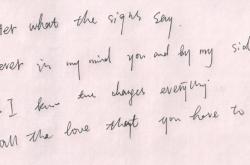 what the signs say.
ever in my mind you and by my sid
I know time changes everything
all the love that you have to